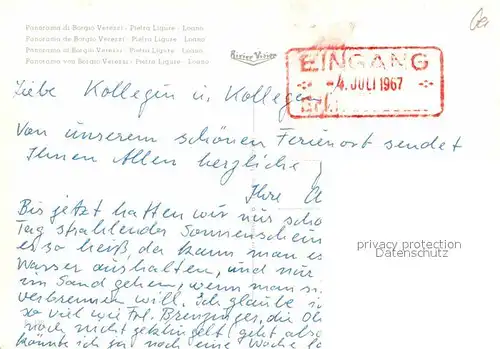 Panorama di Borgio Verezzi - Pietra Ligure - Loano
Panorama de Borgio Verezzi - Pietra Ligure - Loano
Panorama of Borgio Verezzi - Pietra Ligure - Loano
Panorama von Borgio Verezzi - Pietra Ligure - Loano
EINGANG
-4. JULI 1967
Erl.
Liebe Kollegin u. Kollegen
Von unserem schönen Ferienort sendet
Ihnen Allen herzliche
Ihre
Bis jetzt hatten wir nur scho
Tag strahlender Sonnenschein
er so heiß, da kann man es
Wasser aushalten, und nur
im Sand gehen, wenn man si
verbrennen will. Ich glaube i
so viel wie Frl. Brenzinger, die
noch nicht geht also
könnte ich ja noch eine Woche
privacy protection
Datenschutz